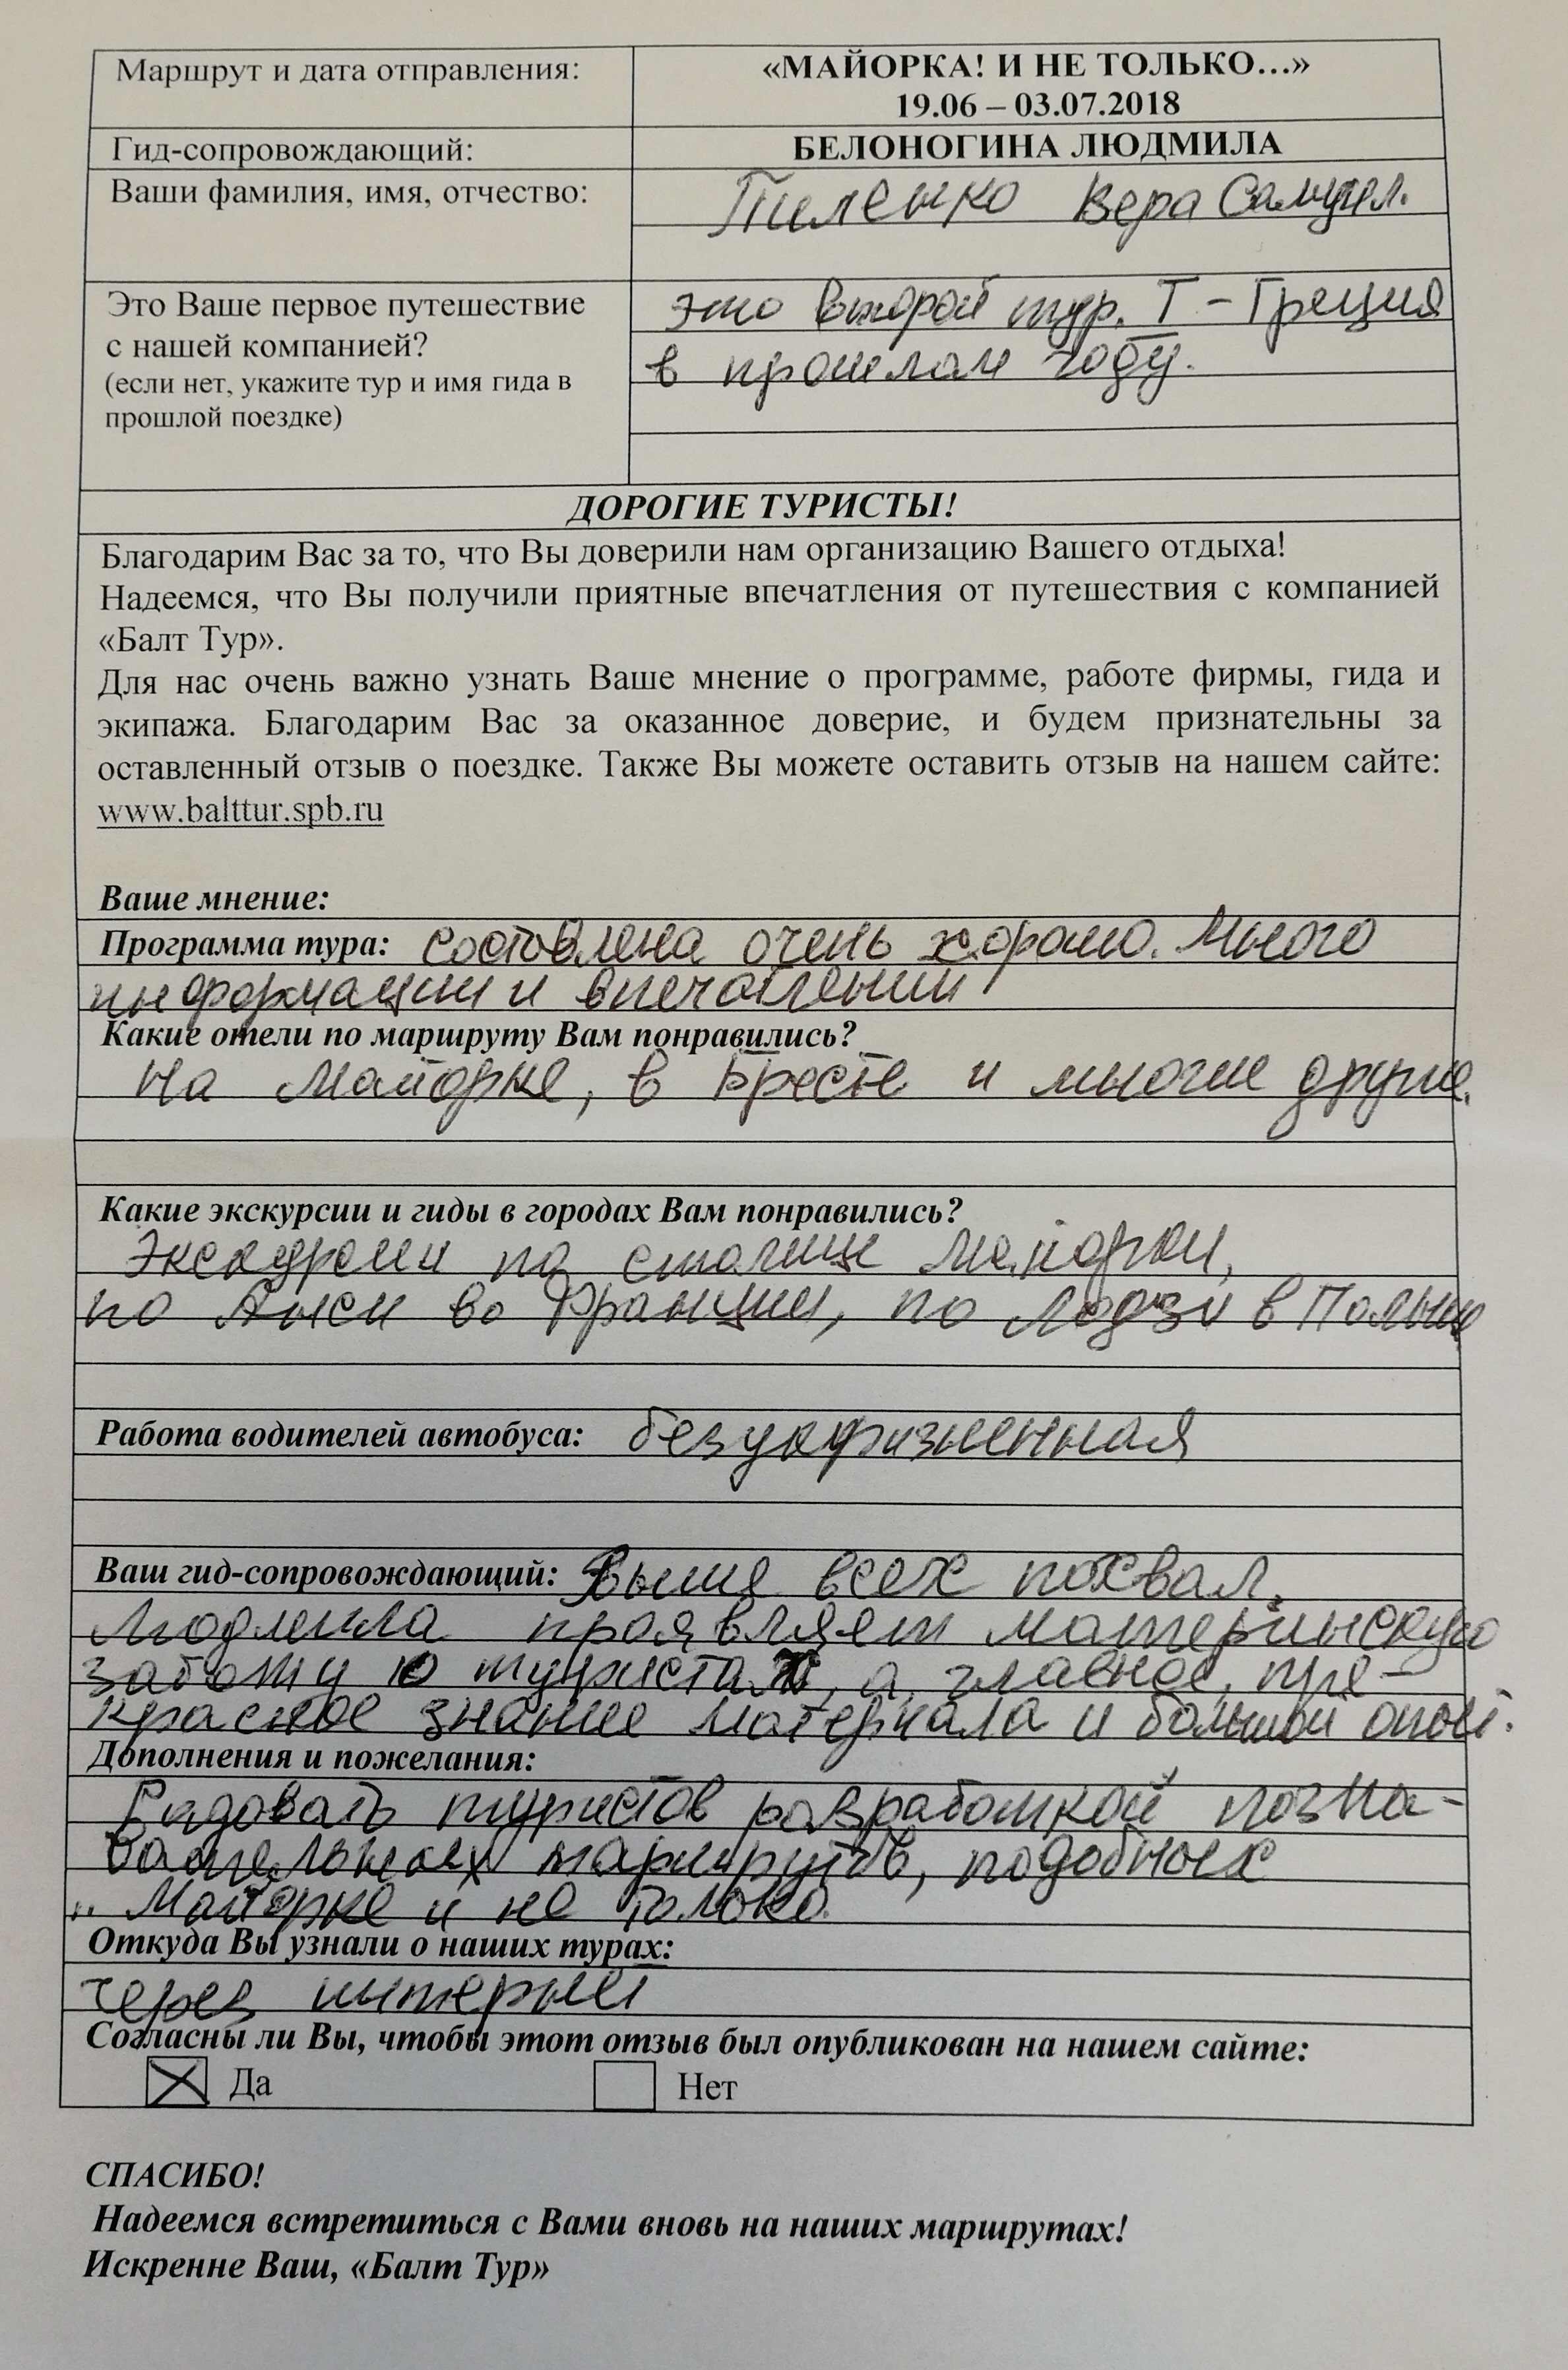 Маршрут и дата отправления:
«МАЙОРКА! И НЕ ТОЛЬКО…»
19.06 – 03.07.2018
Гид-сопровождающий:
БЕЛОНОГИНА ЛЮДМИЛА
Ваши фамилия, имя, отчество:
Пиленко Вера Самуил.
Это Ваше первое путешествие
с нашей компанией?
(если нет, укажите тур и имя гида в
прошлой поездке)
это второй тур. I – Греция
в прошлом году.
ДОРОГИЕ ТУРИСТЫ!
Благодарим Вас за то, что Вы доверили нам организацию Вашего отдыха!
Надеемся, что Вы получили приятные впечатления от путешествия с компанией
«Балт Тур».
Для нас очень важно узнать Ваше мнение о программе, работе фирмы, гида и
экипажа. Благодарим Вас за оказанное доверие, и будем признательны за
оставленный отзыв о поездке. Также Вы можете оставить отзыв на нашем сайте:
www.balttur.spb.ru
Ваше мнение:
Программа тура: составлена очень хорошо. Много
информации и впечатлений
Какие отели по маршруту Вам понравились?
На Майорке, в Бресте и многие другие.
Какие экскурсии и гиды в городах Вам понравились?
Экскурсии по столице Майорки,
по Анси во Франции, по Лодзи в Польше
Работа водителей автобуса: безукоризненная
Ваш гид-сопровождающий: Выше всех похвал.
Людмила проявляет материнскую
заботу о туристах, а главное, пре-
красное знание материала и большой опыт.
Дополнения и пожелания:
Радовать туристов разработкой позна-
вательных маршрутов, подобных
„Майорке и не только.
Откуда Вы узнали о наших турах:
через интернет
Согласны ли Вы, чтобы этот отзыв был опубликован на нашем сайте:
Да Нет
СПАСИБО!
Надеемся встретиться с Вами вновь на наших маршрутах!
Искренне Ваш, «Балт Тур»